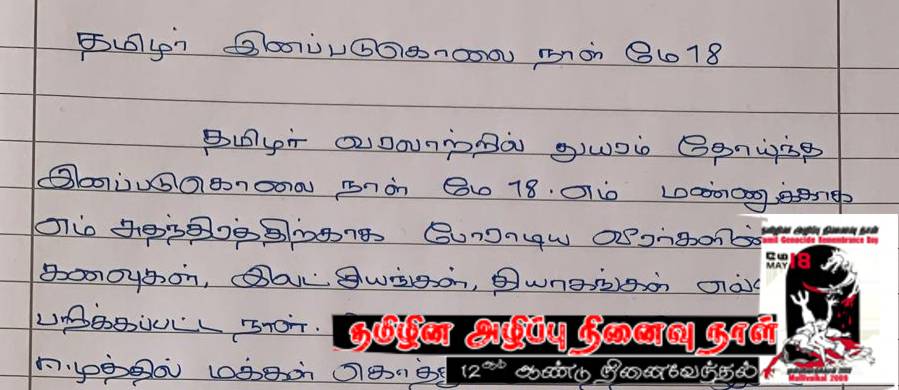 தமிழர் இனப்படுகொலை நாள் மே 18
தமிழர் வரலாற்றில் துயரம் தோய்ந்த
இனப்படுகொலை நாள் மே 18. எம் மண்ணுக்காக
எம் சுதந்திரத்திற்காக போராடிய வீரர்களின்
கனவுகள், இலட்சியங்கள், தியாகங்கள்
பறிக்கப்பட்ட நாள்.
ஈழத்தில் மக்கள்
தமிழின அழிப்பு நினைவு நாள்
12ஆம் ஆண்டு நினைவேந்தல்
தமிழின அழிப்பு நினைவு நாள்
Tamil Genocide Remembrance Day
மே
MAY 18